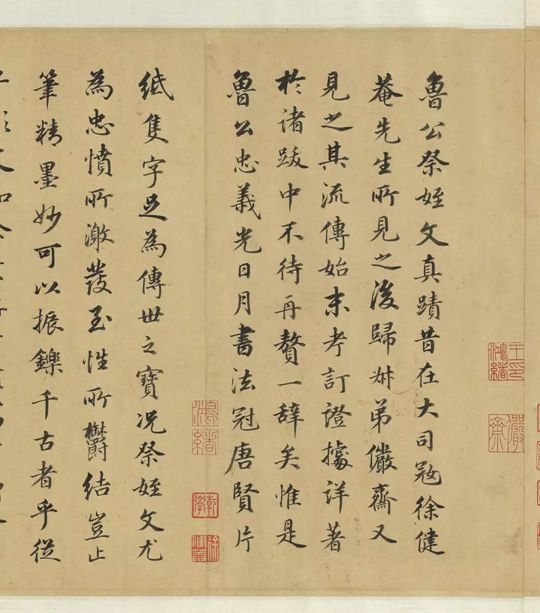 王印鴻緒
儼齋
魯公祭姪文真蹟昔在大司寇徐健
菴先生所見之後歸叔弟儼齋又
見之其流傳始末考訂證據詳著
於諸跋中不待再贅一辭矣惟是
魯公忠義光日月書法冠唐賢片
鴻緒
紙隻字足為傳世之寶況祭姪文尤
為忠憤所激發至性所鬱結豈止
筆精墨妙可以振鑠千古者乎從